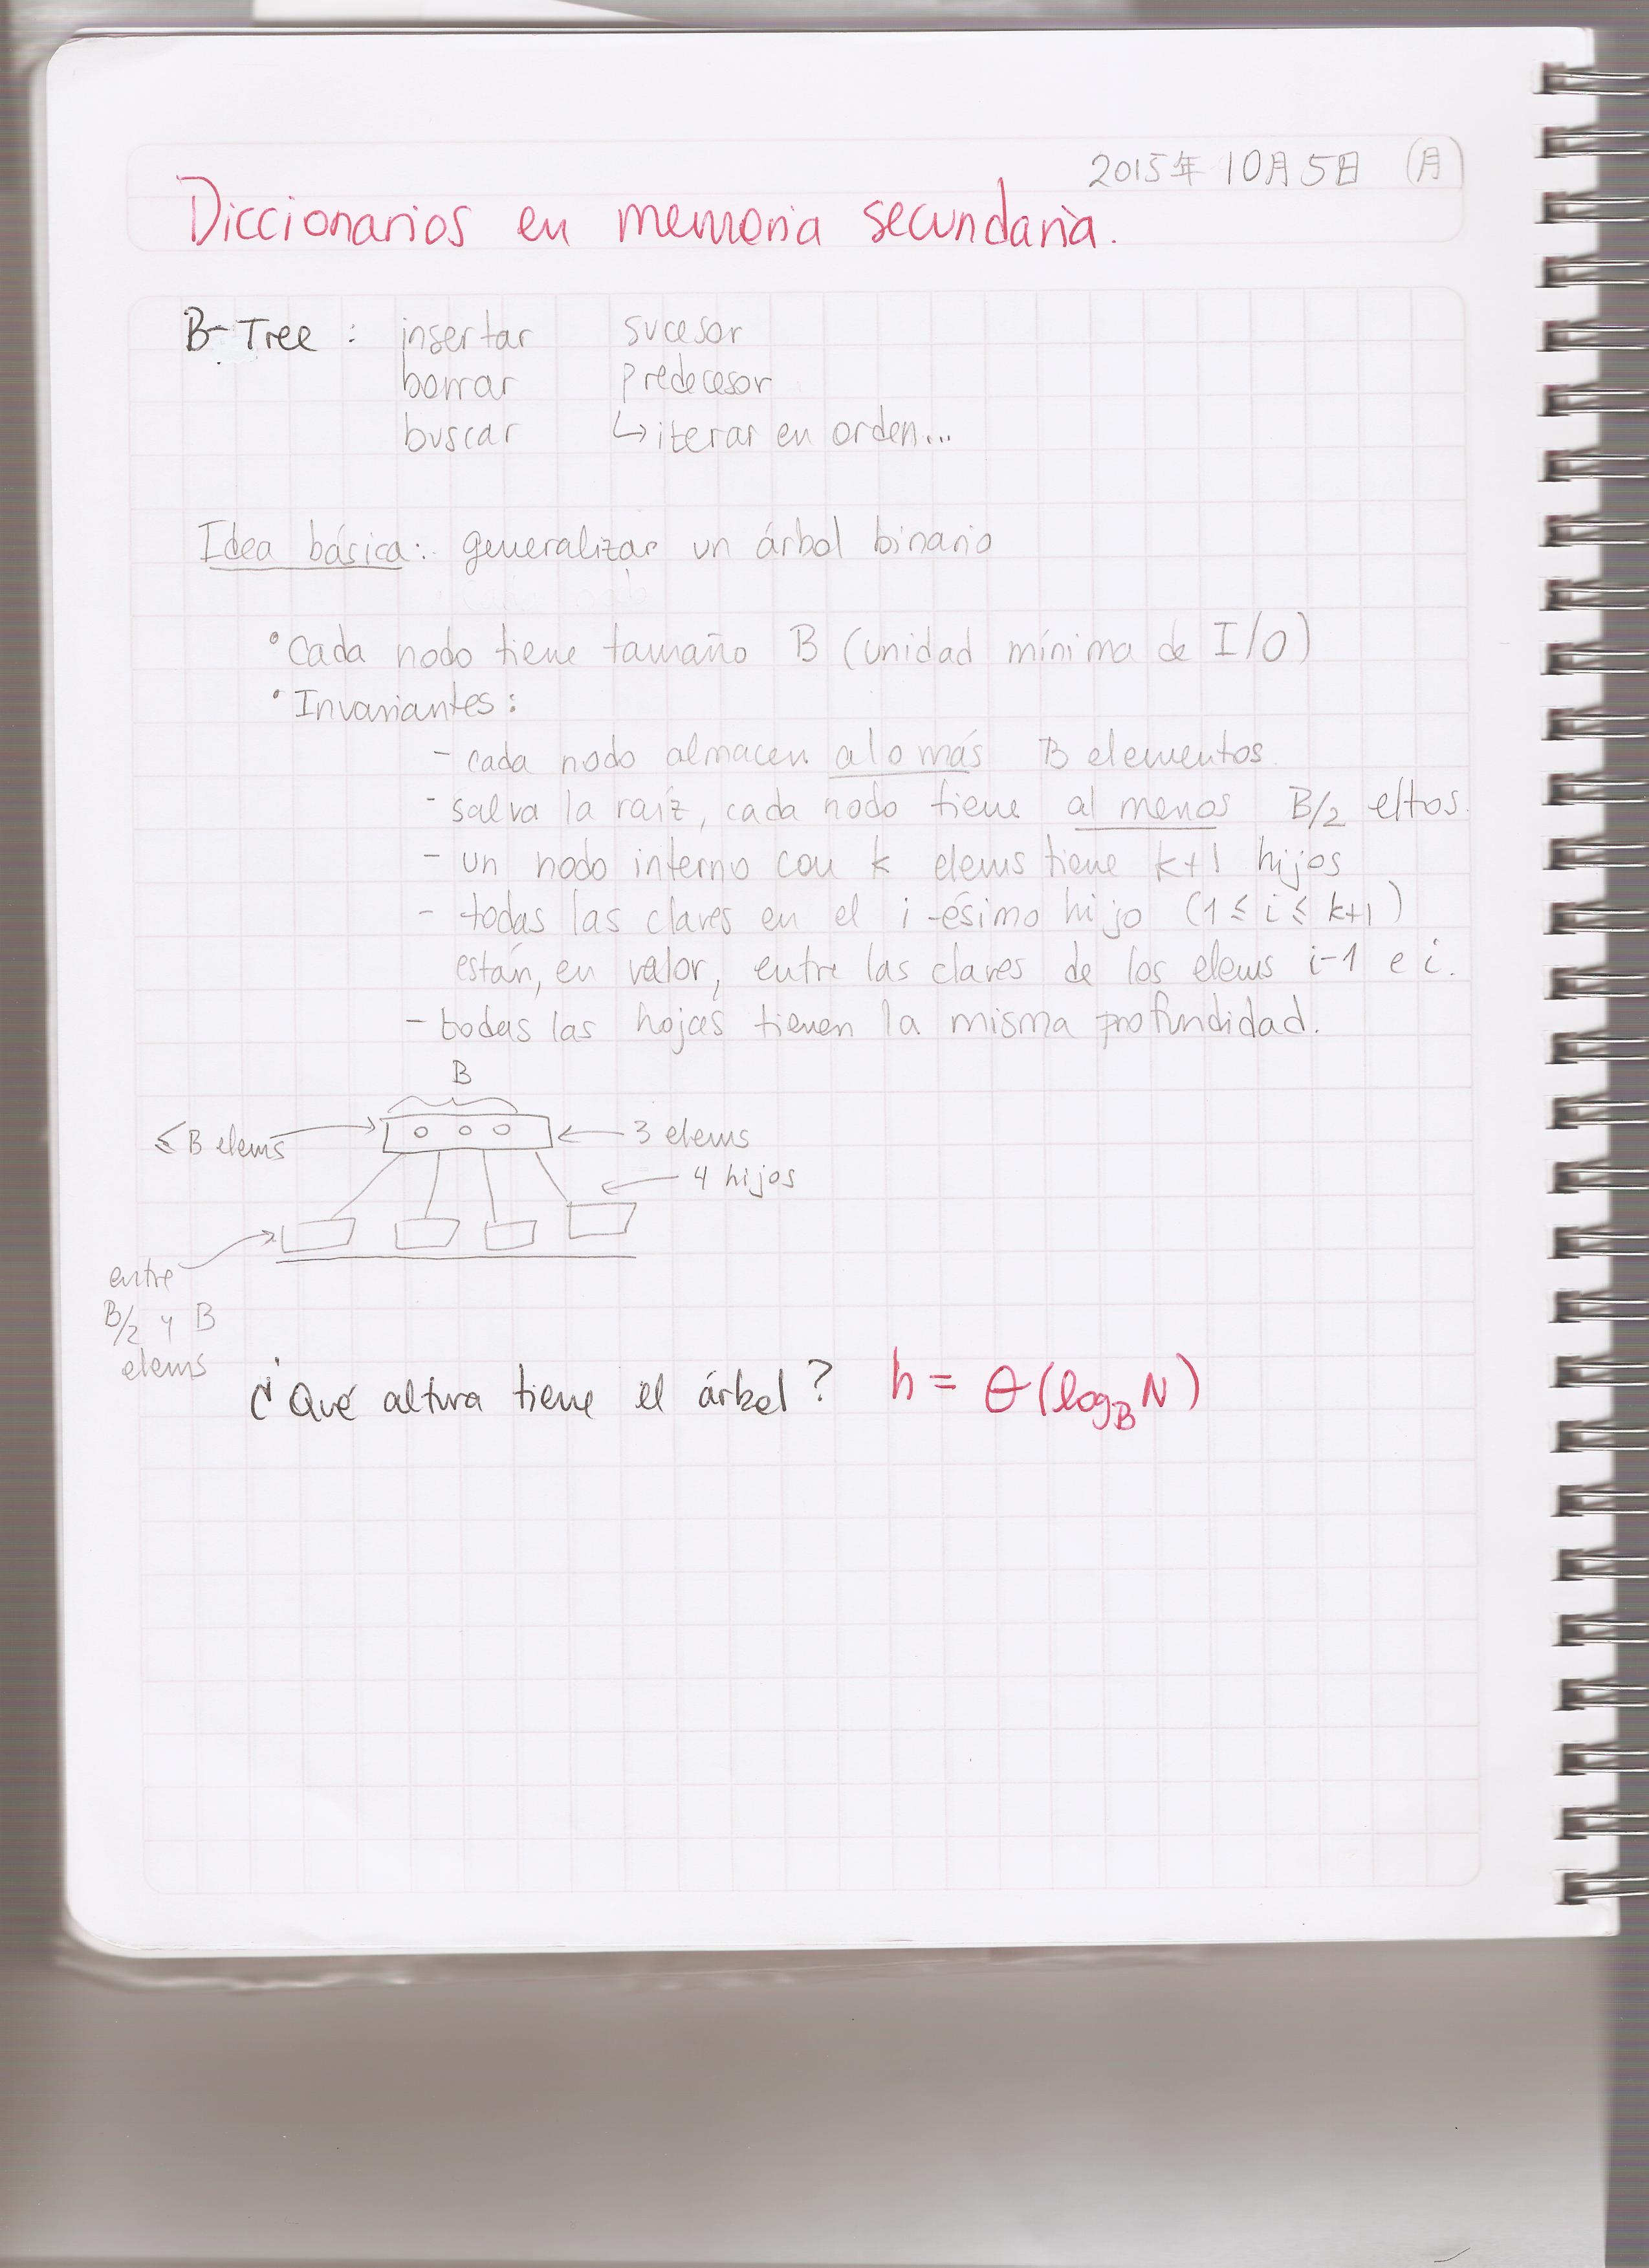 2015年10月5日 (月)
Diccionarios en memoria secundaria.
B-Tree : insertar sucesor
borrar predecesor
buscar ↳ iterar en orden...
Idea básica: generalizar un árbol binario
• Cada nodo tiene tamaño B (unidad mínima de I/O)
• Invariantes:
- cada nodo almacen a lo más B elementos.
- salva la raíz, cada nodo tiene al menos B/2 eltos.
- un nodo interno con k elems tiene k+1 hijos
- todas las claves en el i-ésimo hijo (1 ≤ i ≤ k+1)
están, en valor, entre las claves de los elems i-1 e i.
- todas las hojas tienen la misma profundidad.
B
≤ B elems
3 elems
4 hijos
entre
B/2 y B
elems
¿Qué altura tiene el árbol? h = Θ(log_B N)